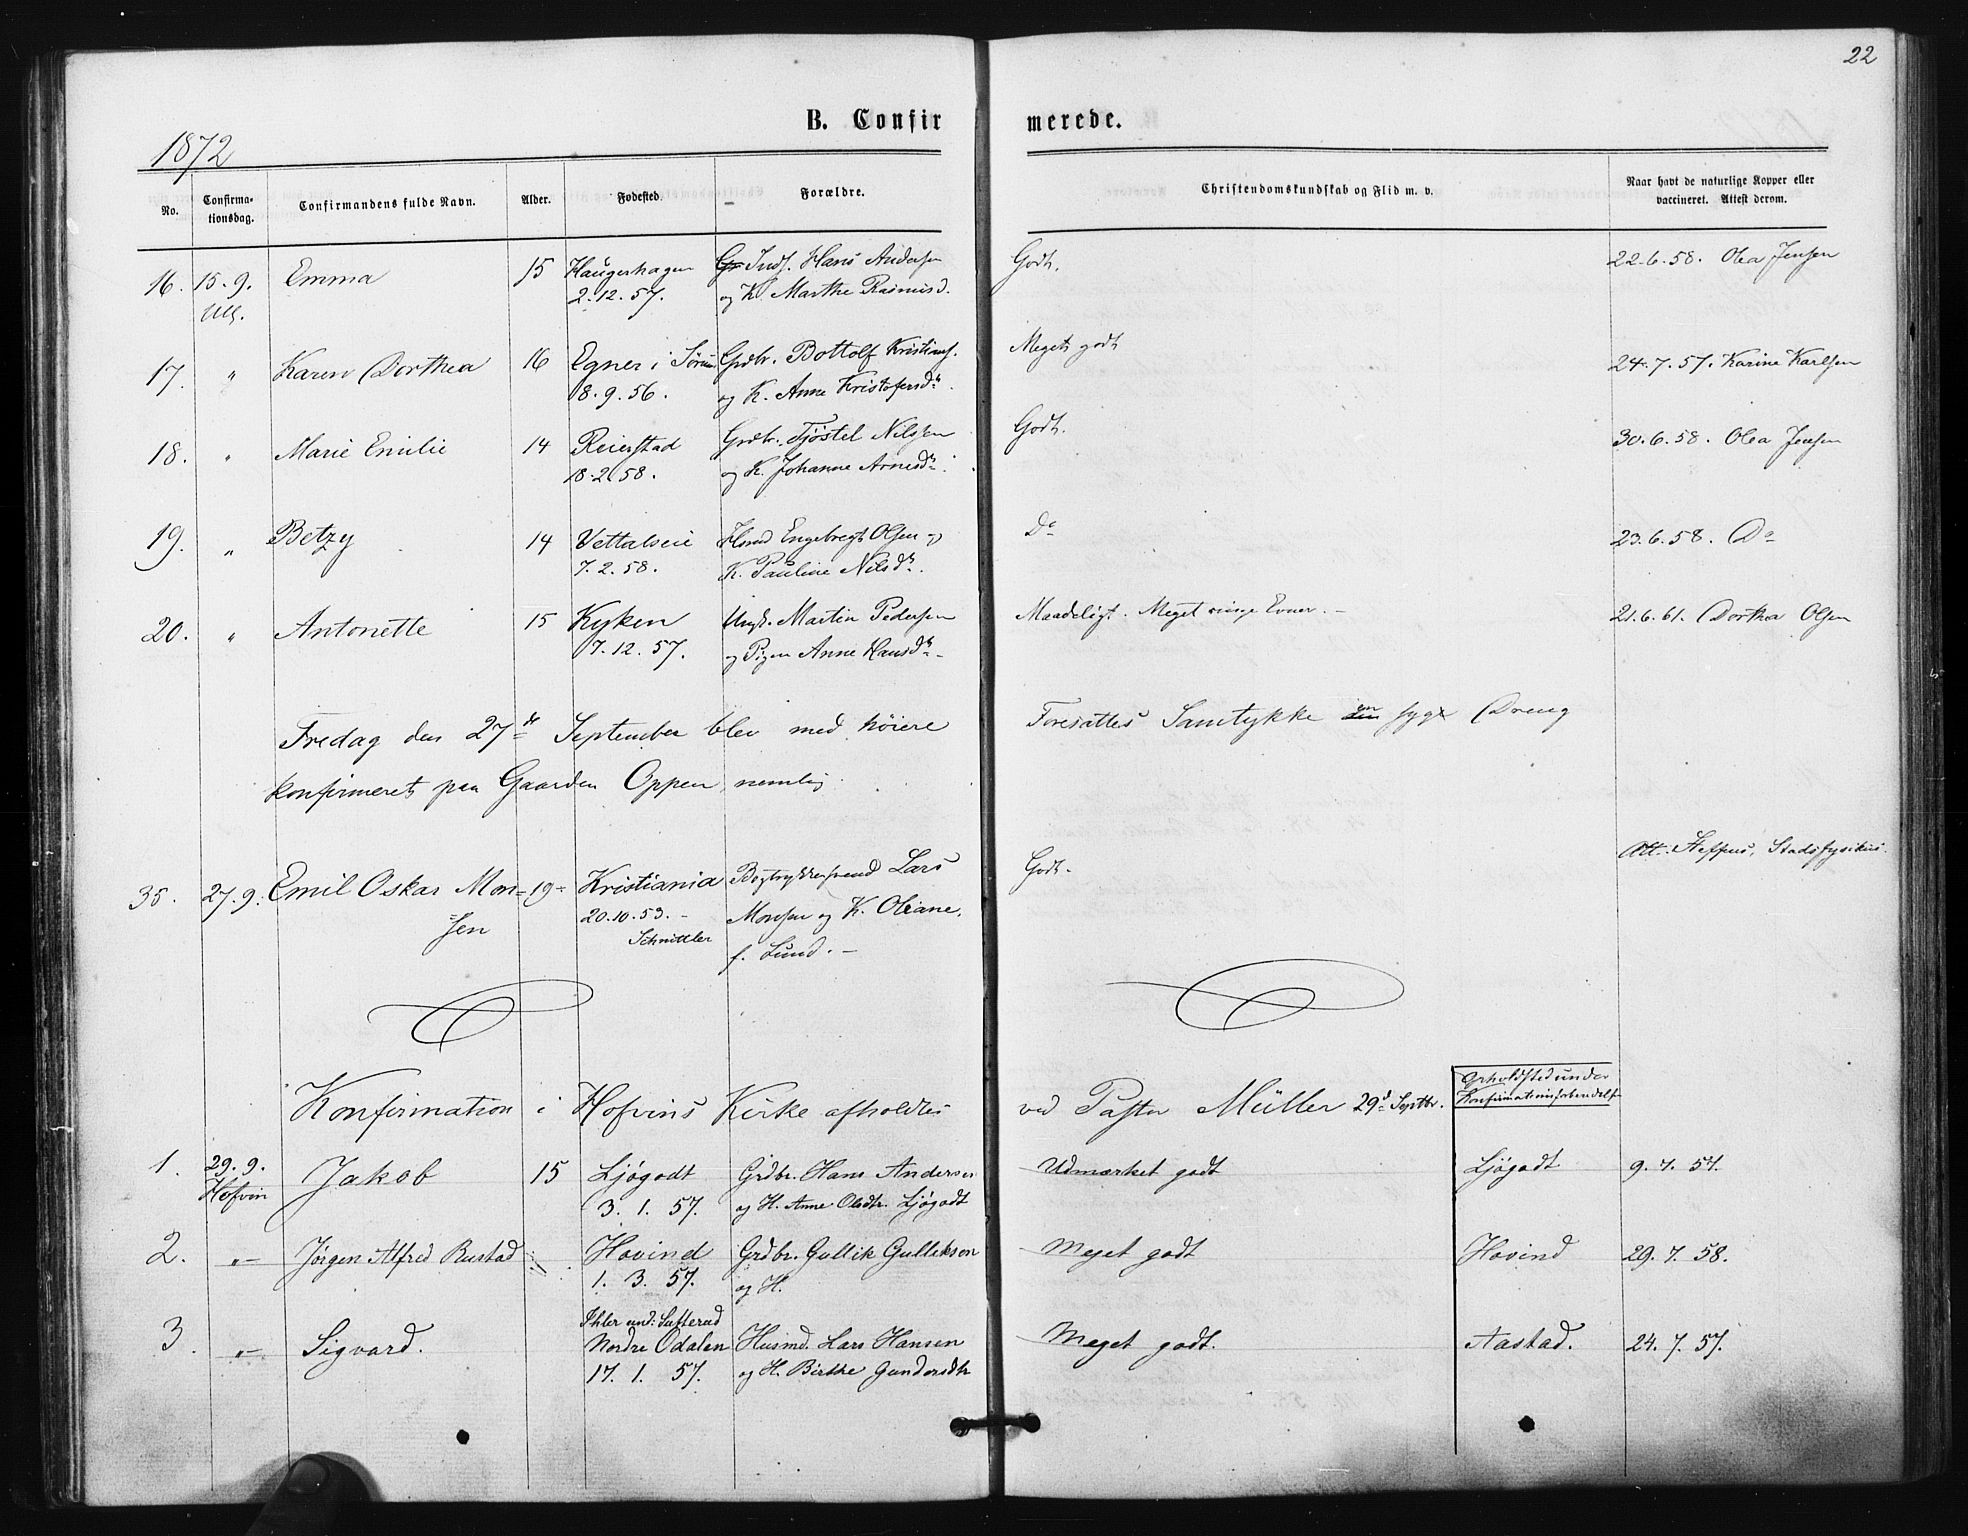 22
B. Confirmerede.
1872
No.
Confirmationsdag.
Confirmandens fulde Navn.
Alder.
Fødested.
Forældre.
Christendomskundskab og Flid m. v.
Naar havt de naturlige Kopper eller
vaccineret. Attest derom.
16. 15.9. Emma 15 Haugerhagen Inds. Hans Andersen Godt. 22.6.58. Olea Jensen
Ull. 2.12.57. og K. Marthe Rasmusd.
17. " Karen Dorthea 16 Egner i Sørum Grdbr. Bottolf Kristians. Meget godt 24.7.57. Karine Karlsen
8.9.56. og K. Anne Kristofersdr.
18. " Marie Emilie 14 Reierstad Grdbr. Tjøstel Nilsen Godt. 30.6.58. Olea Jensen
18.2.58. og K. Johanne Arnesdr.
19. " Betzy 14 Vettalseie Hsmd Engebregt Olsen og Do 23.6.58. Do
7.2.58. K. Pauline Nilsdr.
20. " Antonette 15 Kyken Ungk. Martin Pedersen Maadeligt. Meget ringe Evner. 21.6.61. Dorthea Olsen
7.12.57. og Pigen Anne Hansdr.
Fredag den 27de September blev med høiere Foresattes Samtykke en syg Dreng
konfirmeret paa Gaarden Oppen, nemlig
35. 27.9. Emil Oskar Mon- 19 Kristiania Bogtrykkersvend Lars Godt. Att. Steffens, Stadsfysikus.
sen 20.10.53. Monsen og K. Oleane,
Schnittler f. Lund.
Konfirmation i Hofvins Kirke afholdtes ved Pastor Müller 29d Septbr.
Opholdsted under
Konfirmationsforberedelse
1. 29.9. Jakob 15 Ljøgodt Grdbr. Hans Andersen Udmærket godt Ljøgodt 9.7.57.
Hofvin 3.1.57. og H. Anne Olsdtr. Ljøgodt
2. "- Jørgen Alfred Rustad Hovind Grdbr. Gullik Gulliksen Meget godt Hovind 29.7.58.
1.3.57. og H.
3. "- Sigvard. Ihler und: Sætterud
Nordre Odalen Husmd. Lars Hansen Meget godt. Aastad. 24.7.57.
17.1.57. og H. Birthe Gundersdtr